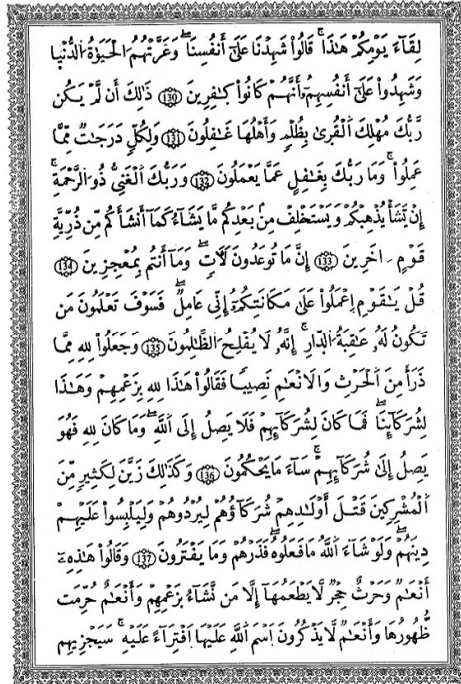 لِقَآءَ يَوْمِكُمْ هَٰذَا ۚ قَالُوا۟ شَهِدْنَا عَلَىٰٓ أَنفُسِنَا ۖ وَغَرَّتْهُمُ الْحَيَوٰةُ الدُّنْيَا
وَشَهِدُوا۟ عَلَىٰٓ أَنفُسِهِمُۥٓ أَنَّهُمْ كَانُوا۟ كَٰفِرِينَ ١٣٠ ذَٰلِكَ أَن لَّمْ يَكُن
رَّبُّكَ مُهْلِكَ الْقُرَىٰ بِظُلْمٍ وَأَهْلُهَا غَٰفِلُونَ ١٣١ وَلِكُلٍّ دَرَجَٰتٌ مِّمَّا
عَمِلُوا۟ ۚ وَمَا رَبُّكَ بِغَٰفِلٍ عَمَّا يَعْمَلُونَ ١٣٢ وَرَبُّكَ الْغَنِىُّ ذُو الرَّحْمَةِ ۚ
إِن يَشَأْ يُذْهِبْكُمْ وَيَسْتَخْلِفْ مِنۢ بَعْدِكُم مَّا يَشَآءُ كَمَآ أَنشَأَكُم مِّن ذُرِّيَّةِ
قَوْمٍ ـاخَرِينَ ١٣٣ إِنَّ مَا تُوعَدُونَ لَأَٓتٍ ۖ وَمَآ أَنتُم بِمُعْجِزِينَ ١٣٤
قُلْ يَٰقَوْمِ اِعْمَلُوا۟ عَلَىٰ مَكَانَتِكُمُۥٓ إِنِّى عَامِلٌ ۖ فَسَوْفَ تَعْلَمُونَ مَن
تَكُونُ لَهُۥ عَٰقِبَةُ الدِّارِ ۚ إِنَّهُۥ لَا يُفْلِحُ الظَّٰلِمُونَ ١٣٥ وَجَعَلُوا۟ لِلهِ مِمَّا
ذَرَأَ مِنَ الْحَرْثِ وَالَانْعَٰمِ نَصِيبًا فَقَالُوا۟ هَٰذَا لِلهِ بِزَعْمِهِمْ وَهَٰذَا
لِشُرَكَآئِنَا ۖ فَمَا كَانَ لِشُرَكَآئِهِمْ فَلَا يَصِلُ إِلَى اَللَّهِ ۖ وَمَا كَانَ لِلهِ فَهُوَ
يَصِلُ إِلَىٰ شُرَكَآئِهِمْ ۗ سَآءَ مَا يَحْكُمُونَ ١٣٦ وَكَذَٰلِكَ زَيَّنَ لِكَثِيرٍ مِّنَ
اَلْمُشْرِكِينَ قَتْلَ أَوْلَٰدِهِمْ شُرَكَآؤُهُمْ لِيُرْدُوهُمْ وَلِيَلْبِسُوا۟ عَلَيْهِمْ
دِينَهُمْ ۖ وَلَوْ شَآءَ اَللَّهُ مَا فَعَلُوهُ ۖ فَذَرْهُمْ وَمَا يَفْتَرُونَ ١٣٧ وَقَالُوا۟ هَٰذِهِۦٓ
أَنْعَٰمٌ وَحَرْثٌ حِجْرٌ لَّا يَطْعَمُهَآ إِلَّا مَن نَّشَآءُ بِزَعْمِهِمْ وَأَنْعَٰمٌ حُرِّمَتْ
ظُهُورُهَا وَأَنْعَٰمٌ لَّا يَذْكُرُونَ اَسْمَ اَللَّهِ عَلَيْهَا اَفْتِرَآءً عَلَيْهِ ۚ سَيَجْزِيهِم